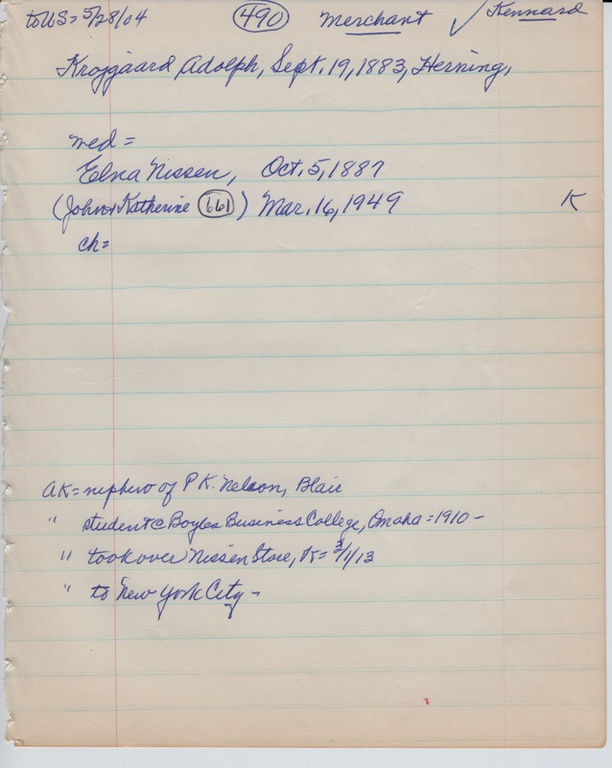 to US = 5/28/04 490 Merchant ✓ Kennard
Krojgaard Adolph, Sept. 19, 1883, Herning,
wed =
Elna Nissen, Oct. 5, 1887
(John & Katherine 661) Mar. 16, 1949 K
ch =
AK = nephew of P K. Nelson, Blair
" student @ Boyles Business College, Omaha = 1910 -
" took over Nissen Store, K = 3/1/13
" to New York City -